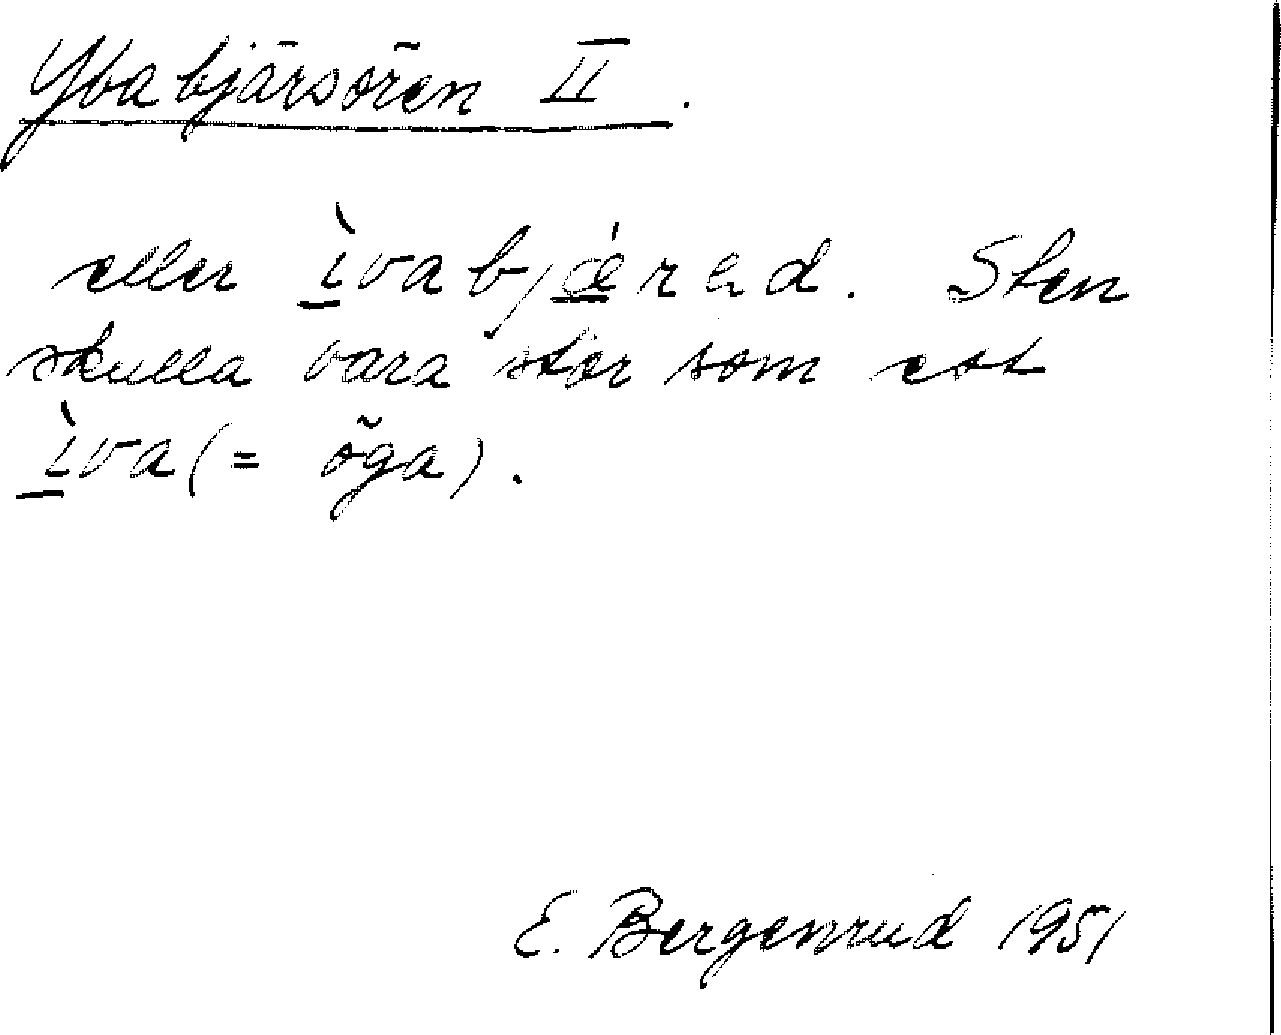 Ybabjärsören II.
eller ìvabjǽred. Sten
skulla vara stor som ett
ìva (= öga).
E. Bergenrud 1951